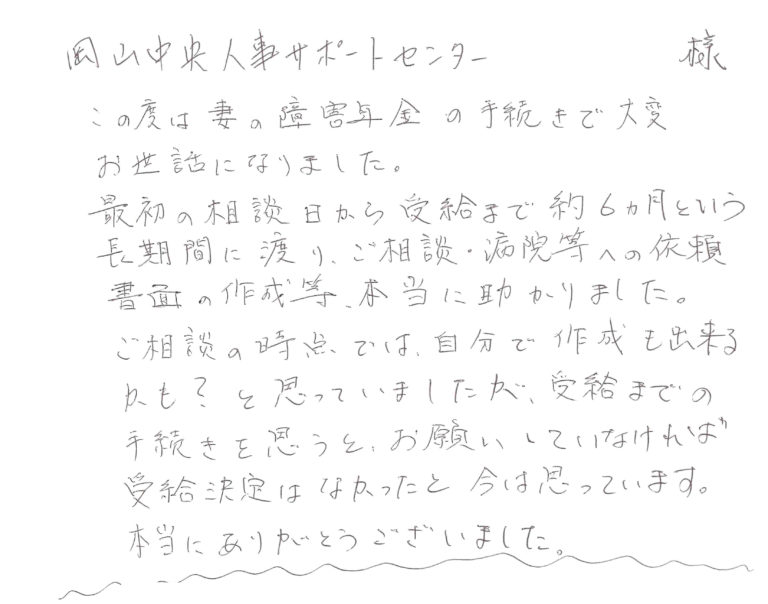 岡山中央人事サポートセンター 様
この度は妻の障害年金の手続きで大変
お世話になりました。
最初の相談日から受給まで約6ヵ月という
長期間に渡り、ご相談・病院等への依頼
書面の作成等、本当に助かりました。
ご相談の時点では、自分で作成も出来る
かも?と思っていましたが、受給までの
手続きを思うと、お願いしていなければ
受給決定はなかったと今は思っています。
本当にありがとうございました。